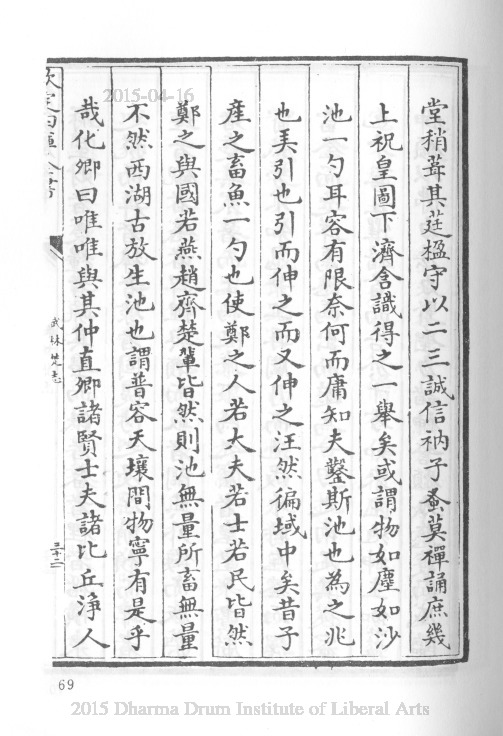 堂稍葺其莛楹守以二三誠信衲子蚤莫禪誦庶幾
上祝皇圖下濟含識得之一舉矣或謂物如塵如沙
池一勺耳容有限奈何而庸知夫鑿斯池也為之兆
也美引也引而伸之而又伸之汪然徧域中矣昔子
産之畜魚一勺也使鄭之人若大夫若士若民皆然
鄭之與國若燕趙齊楚輩皆然則池無量所畜無量
不然西湖古放生池也謂普容天壤間物寧有是乎
哉化卿曰唯唯與其仲直卿諸賢士夫諸比丘淨人
欽定四庫全書
武林梵志
三十二
2015-04-16
69
2015 Dharma Drum Institute of Liberal Arts